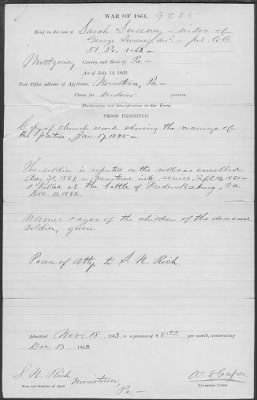 WAR OF 1861.
Brief in the case of Sarah Sweeney widow of
51 Pa. Vols
Montgomery County, and State of Pa
Act of July 14, 1862.
Post Office address of Applicant: Norristown, Pa
Claim for Widow
Declaration and Identification in due Form.
PROOF EXHIBITED.
Copy of church record showing the marriage of
the parties, Jany 17, 1845
The soldier is reported on the rolls as enrolled
& killed at the battle of Fredericksburg, Va
Dec. 13, 1862
Names & ages of the children of the deceased
soldier, given
Power of Atty. to S. N. Rich
Admitted Nov. 18, 1863, to a pension of $8.00 per month, commencing
Dec. 13, 1862.
S. N. Rich
Name and Residence of Agent.
Norristown,
Pa
Examining Clerk.